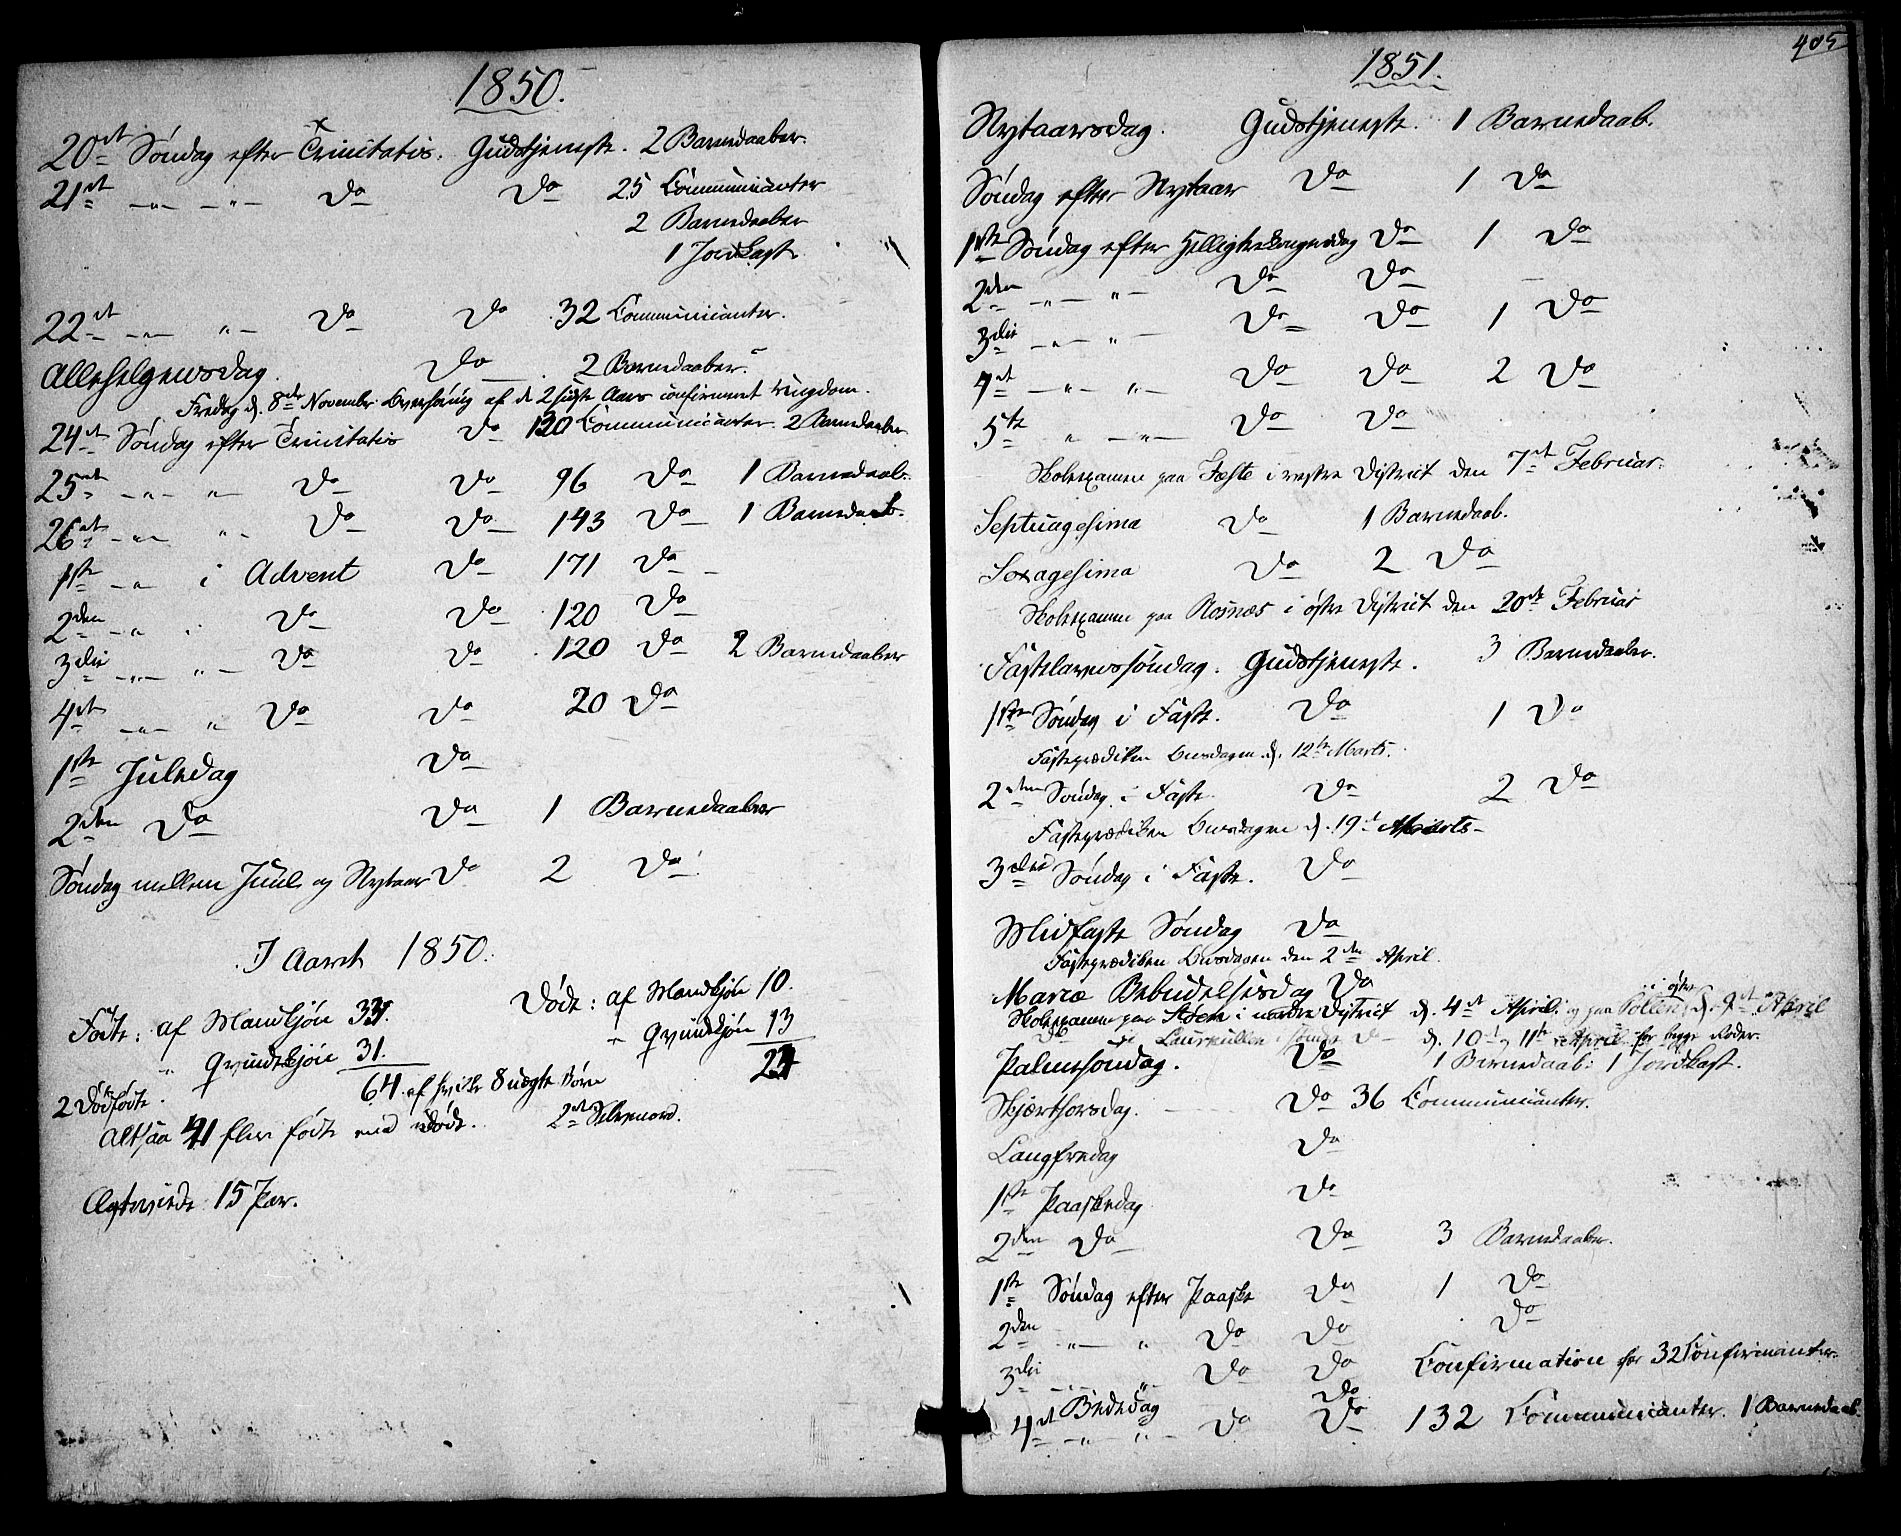 1850.
20de Søndag efter Trinitatis. Gudstjeneste. 2 Barnedaaber.
21de -"- -"- Do Do 25 Communicanter
2 Barnedaaber
1 Jordkast.
22de -"- "- Do Do 32 Communicanter.
Allehelgensdag. Do 2 Barnedaaber.
Fredag d. 8de November Overhøring af de 2 sidste Aars confirmeret Ungdom.
24de Søndag efter Trinitatis Do 130 Communicanter 2 Barnedaaber
25de -"- "- Do Do 96 Do 1 Barnedaab.
26de -"- "- Do Do 143 Do 1 Barnedaab.
1ste -"- i Advent Do 171 Do -
2den -"- i Do Do 120 Do
3die -"- "- Do Do 120 Do 2 Barnedaaber
4de -"- " Do Do 20 Do
1ste Juledag Do
2den Do Do 1 Barnedaaber
Søndag mellem Juul og Nytaar Do 2 Do
I Aaret 1850.
Fødte: af Mandkjøn 33. Døde: af Mandkjøn 10.
" Qvindekjøn 31. " Qvindekjøn 13
64. af hvilke 8 uægte Børn
2 Dødfødte.
Altsaa 41 flere fødte end døde. 2de Selvmord.
Ægteviede 15 Par.
405
1851.
Nytaarsdag. Gudstjeneste. 1 Barnedaab.
Søndag efter Nytaar Do 1 Do
1ste Søndag efter Helligtrekongersdag Do 1 Do
2den -"- "- Do Do -
3die -"- "- Do Do 1 Do
4de -"- "- Do Do 2 Do
5te " -"- Do Do
Skoleexamen paa Fæste i vestre District den 7de Februar.
Septuagesima Do 1 Barnedaab.
Sexagesima Do 2 Do
Skoleexamen paa Rosnæs i østre District den 20de Februar
Fastelavnssøndag. Gudstjeneste. 3 Barnedaaber.
1ste Søndag i Faste. Do 1 Do
Fasteprædiken Onsdagen d. 12te Marts.
2den Søndag i Faste. Do 2 Do
Fasteprædiken Onsdagen d. 19de Marts-
3die Søndag i Faste. Do
Midfaste Søndag Do
Fasteprædiken Onsdagen den 2den April.
Mariæ Bebudelsesdag Do
Skoleexamen paa Støen i nordre District d. 4de April. og paa Pollen i østre d. 9de April
d. 10de og 11te April for begge Roder.
Palmesøndag. Do 1 Barnedaab. 1 Jordkast.
Skjærthorsdag. Do 36 Communicanter.
Langfredag Do
1ste Paaskedag Do
2den Do Do 3 Barnedaaber.
1ste Søndag efter Paaske Do 1 Do
2den -"- " Do Do Do
3die -"- "- Do Do Confirmation for 32 Confirmanter.
Bededag Do
4de -"- "- Do Do 132 Communicanter. 1 Barnedaab.